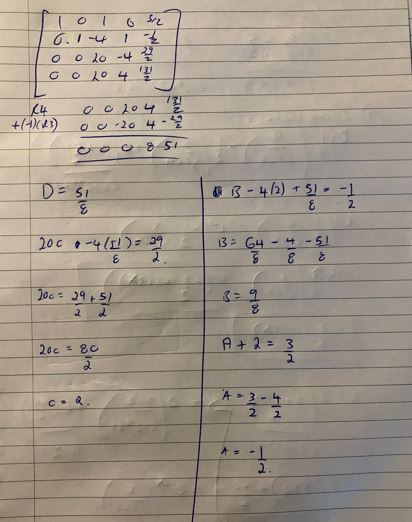 1 0 1 0 3/2
0 1 -4 1 -1/2
0 0 20 -4 29/2
0 0 20 4 131/2
R4 0 0 20 4 131/2
+(-1)(R3) 0 0 -20 4 -29/2
0 0 0 8 51
D = 51/8
20c -4(51/8) = 29/2
20c = 29/2 + 51/2
20c = 80/2
c = 2.
B - 4(2) + 51/8 = -1/2
B = 64/8 - 4/8 - 51/8
B = 9/8
A + 2 = 3/2
A = 3/2 - 4/2
A = -1/2.